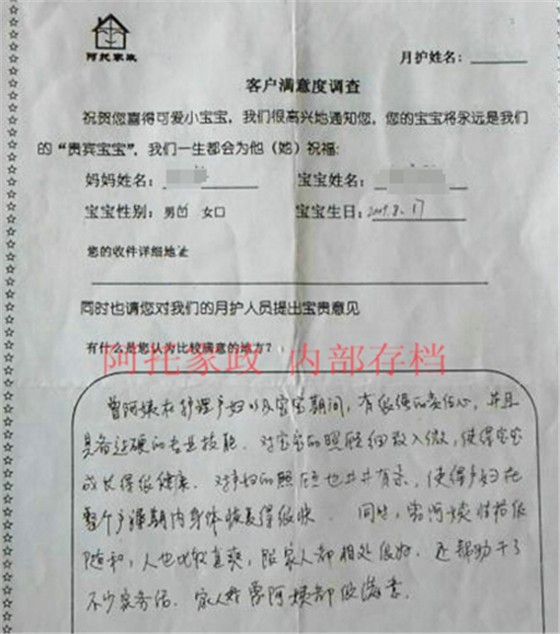 阿托家政
月护姓名：
客户满意度调查
祝贺您喜得可爱小宝宝，我们很高兴地通知您，您的宝宝将永远是我们
的“贵宾宝宝”，我们一生都会为他（她）祝福：
妈妈姓名： 宝宝姓名：
宝宝性别：男☑ 女口 宝宝生日：2009.8.17
您的收件详细地址
同时也请您对我们的月护人员提出宝贵意见
有什么是您认为比较满意的地方？
阿托家政 内部存档
曾阿姨在护理产妇以及宝宝期间，有很强的责任心，并且
具备过硬的专业技能。对宝宝的照顾细致入微，使得宝宝
成长得很健康。对产妇的照顾也井井有条，使得产妇在
整个产褥期内身体恢复得很快。同时，曾阿姨性格很
随和，人也比较直爽，跟家人都相处很好。还帮助干了
不少家务活。家人对曾阿姨都很满意。